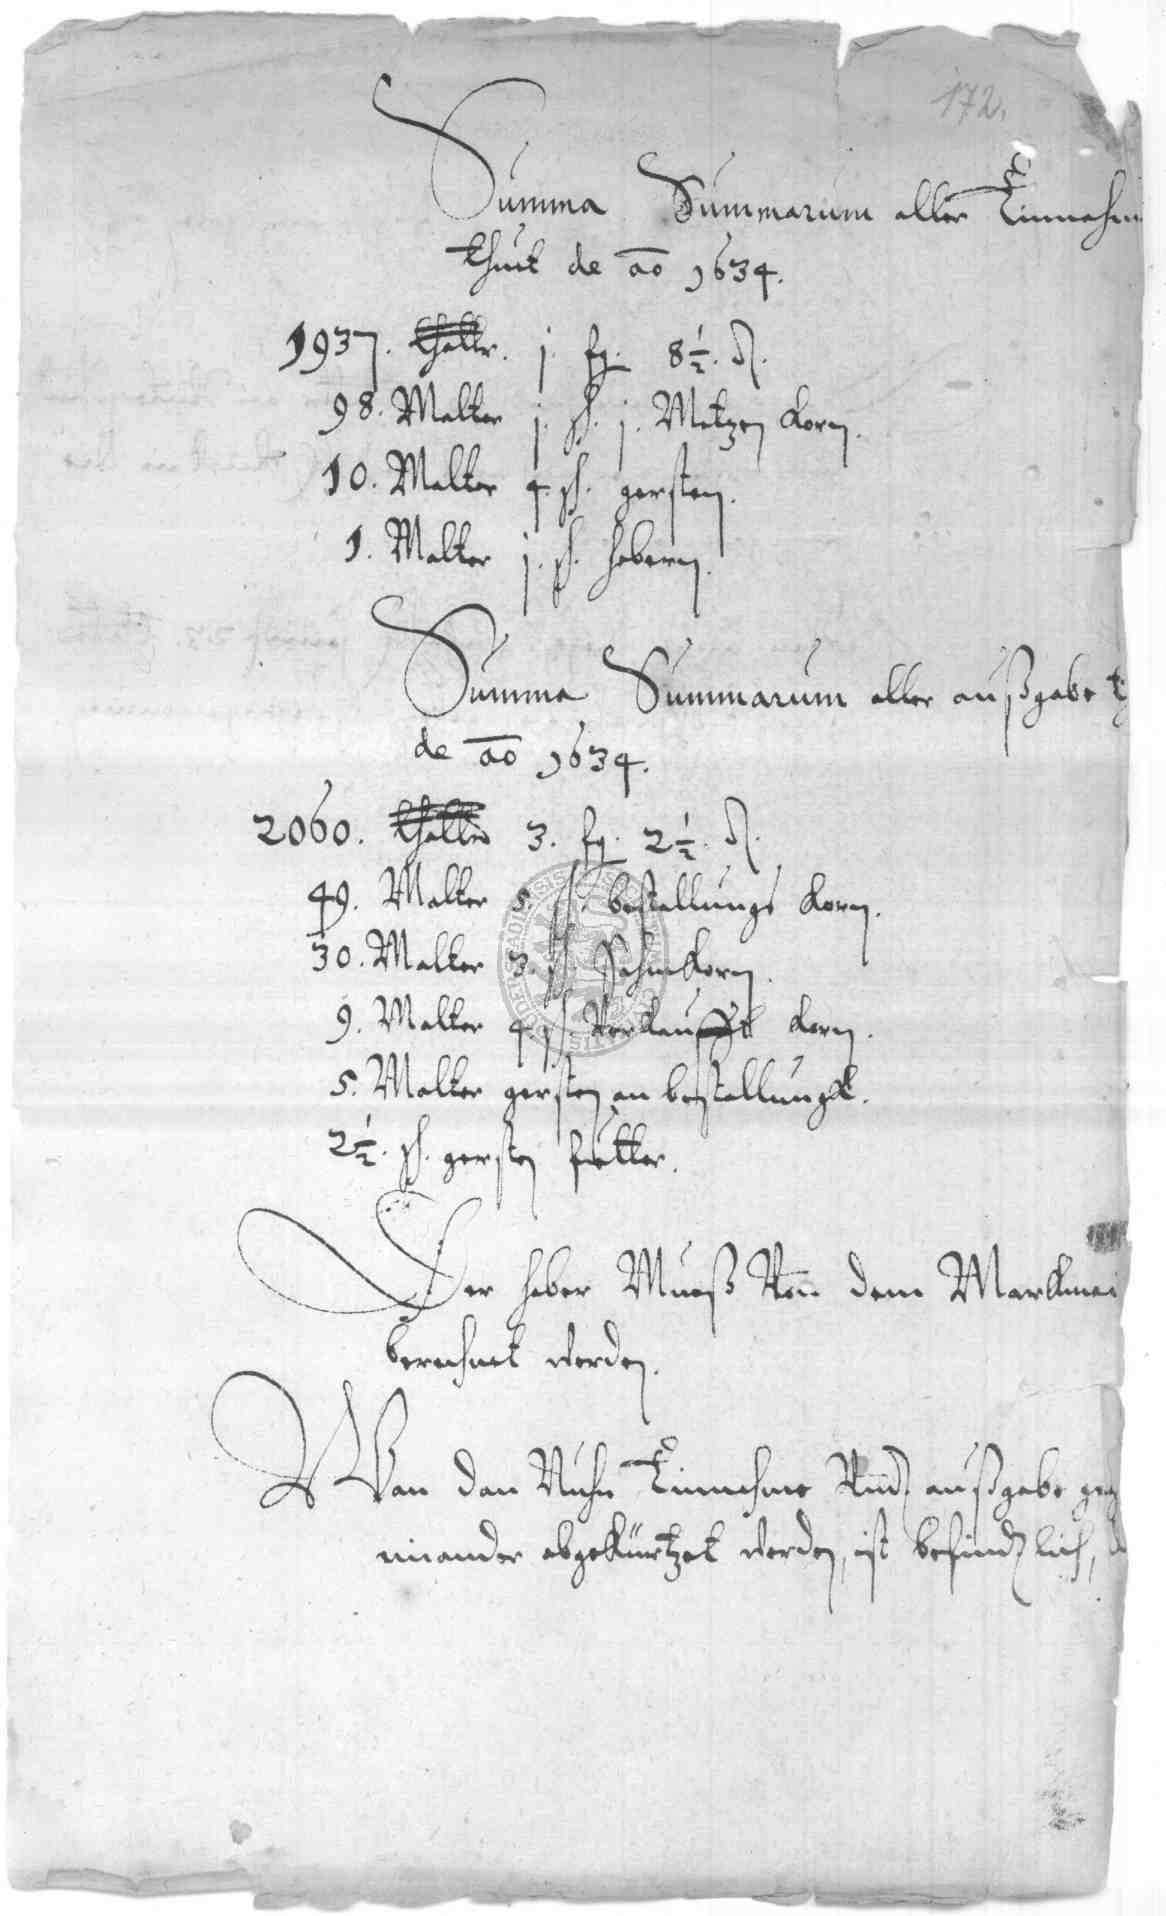 172.
Summa Summarum aller Einnahm
thut de ao 1634.
1937. thaller. j. fg. 8½. ₰.
98. Malter j. sch. j. Metzen Korn.
10. Malter 4. sch. gersten.
1. Malter j. sch. habern.
Summa Summarum aller außgabe
de ao 1634.
2060. thaller 3. fg. 2½. ₰.
49. Malter 5. sch. bestallungs Korn.
30. Malter 3. sch. Korn.
9. Malter 4. sch. Verkaufft Korn.
5. Malter gersten an bestallungk.
2½. sch. gersten futter.
Der haber Mueß Von dem Marckmei
berechnet werden.
Wan dan Nuhn Einnehme Vnd außgabe geg
einander abgekürtzet werden, ist befindlich,